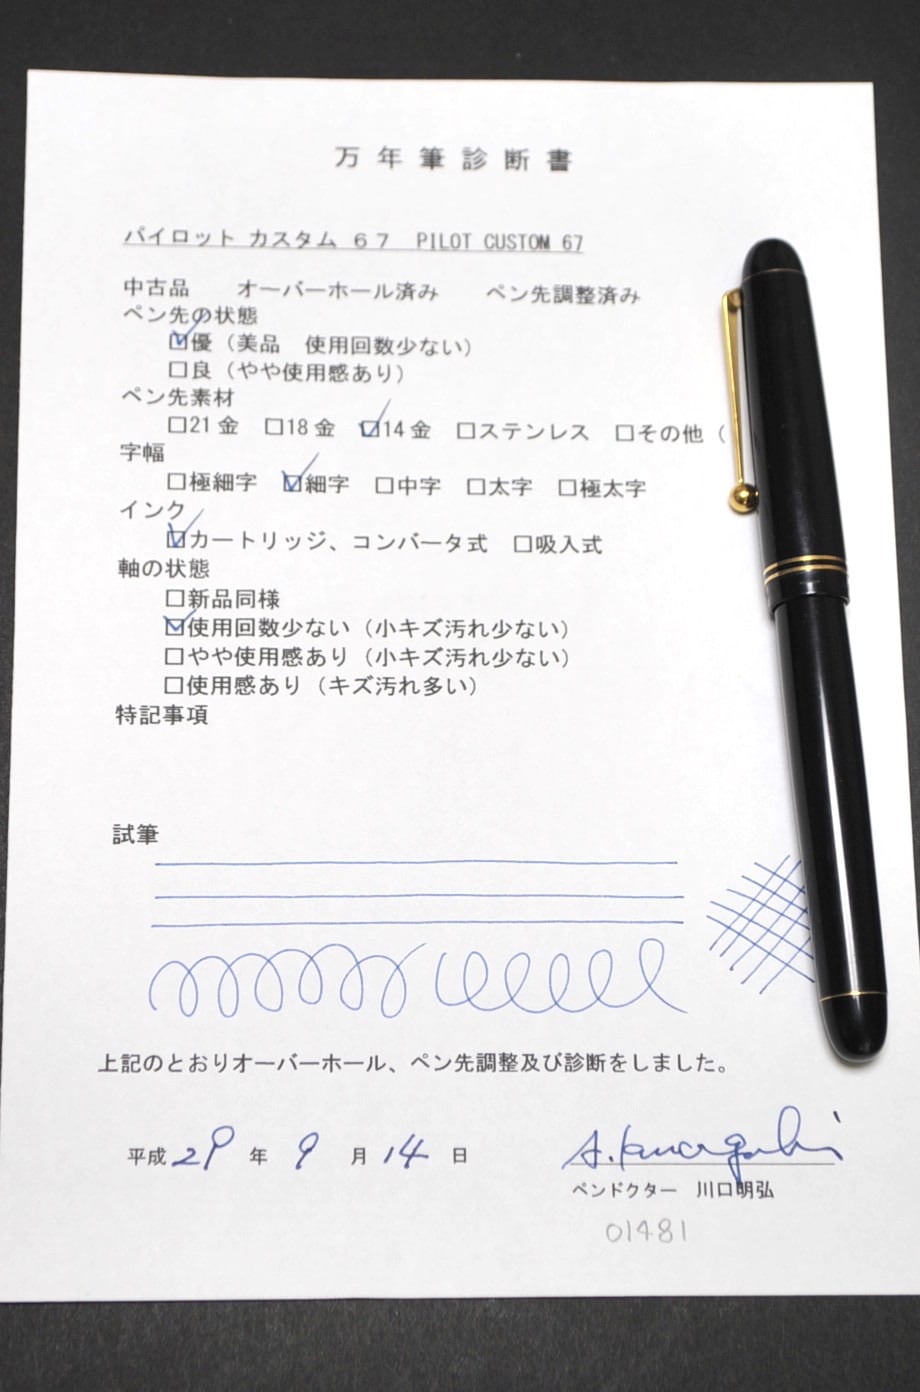 万年筆診断書
パイロット カスタム 67 PILOT CUSTOM 67
中古品 オーバーホール済み ペン先調整済み
ペン先の状態
☑優（美品 使用回数少ない）
□良（やや使用感あり）
ペン先素材
□21金 □18金 ☑14金 □ステンレス □その他（
字幅
□極細字 ☑細字 □中字 □太字 □極太字
インク
☑カートリッジ、コンバータ式 □吸入式
軸の状態
□新品同様
☑使用回数少ない（小キズ汚れ少ない）
□やや使用感あり（小キズ汚れ少ない）
□使用感あり（キズ汚れ多い）
特記事項
試筆
上記のとおりオーバーホール、ペン先調整及び診断をしました。
平成29年9月14日
A. Kawaguchi
ペンドクター 川口明弘
01481